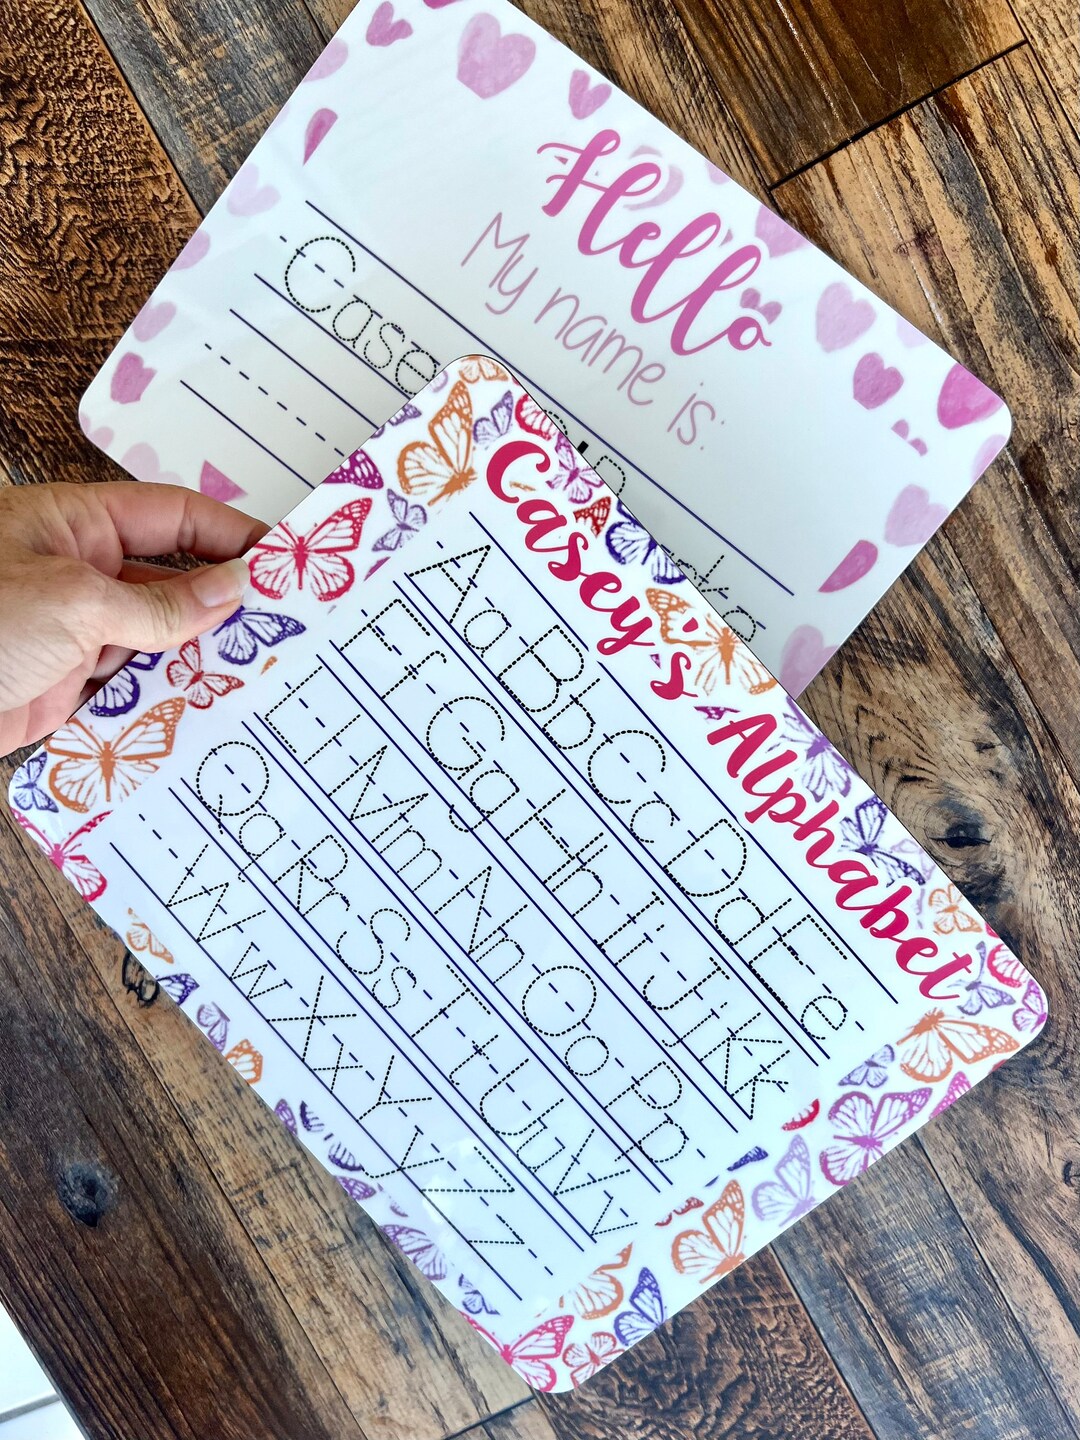 Hello
My name is:
Case
Casey's Alphabet
Aa Bb Cc Dd Ee
Ff Gg Hh Ii Jj Kk
Ll Mm Nn Oo Pp
Qq Rr Ss Tt Uu Vv
Ww Xx Yy Zz